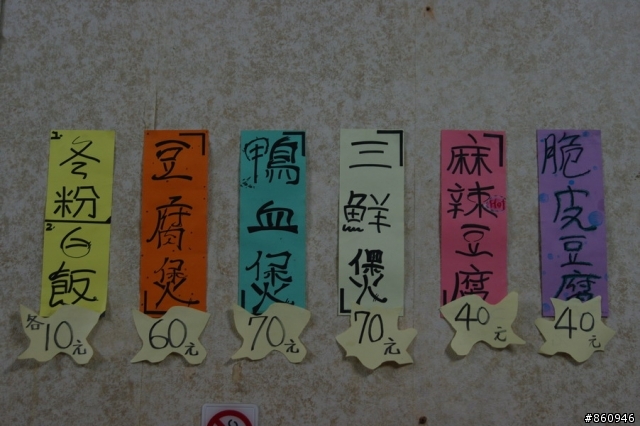 1. 冬粉
2. 白飯
各10元
豆腐煲
60元
鴨血煲
70元
三鮮煲
70元
麻辣豆腐
40元
脆皮豆腐
40元
#860946